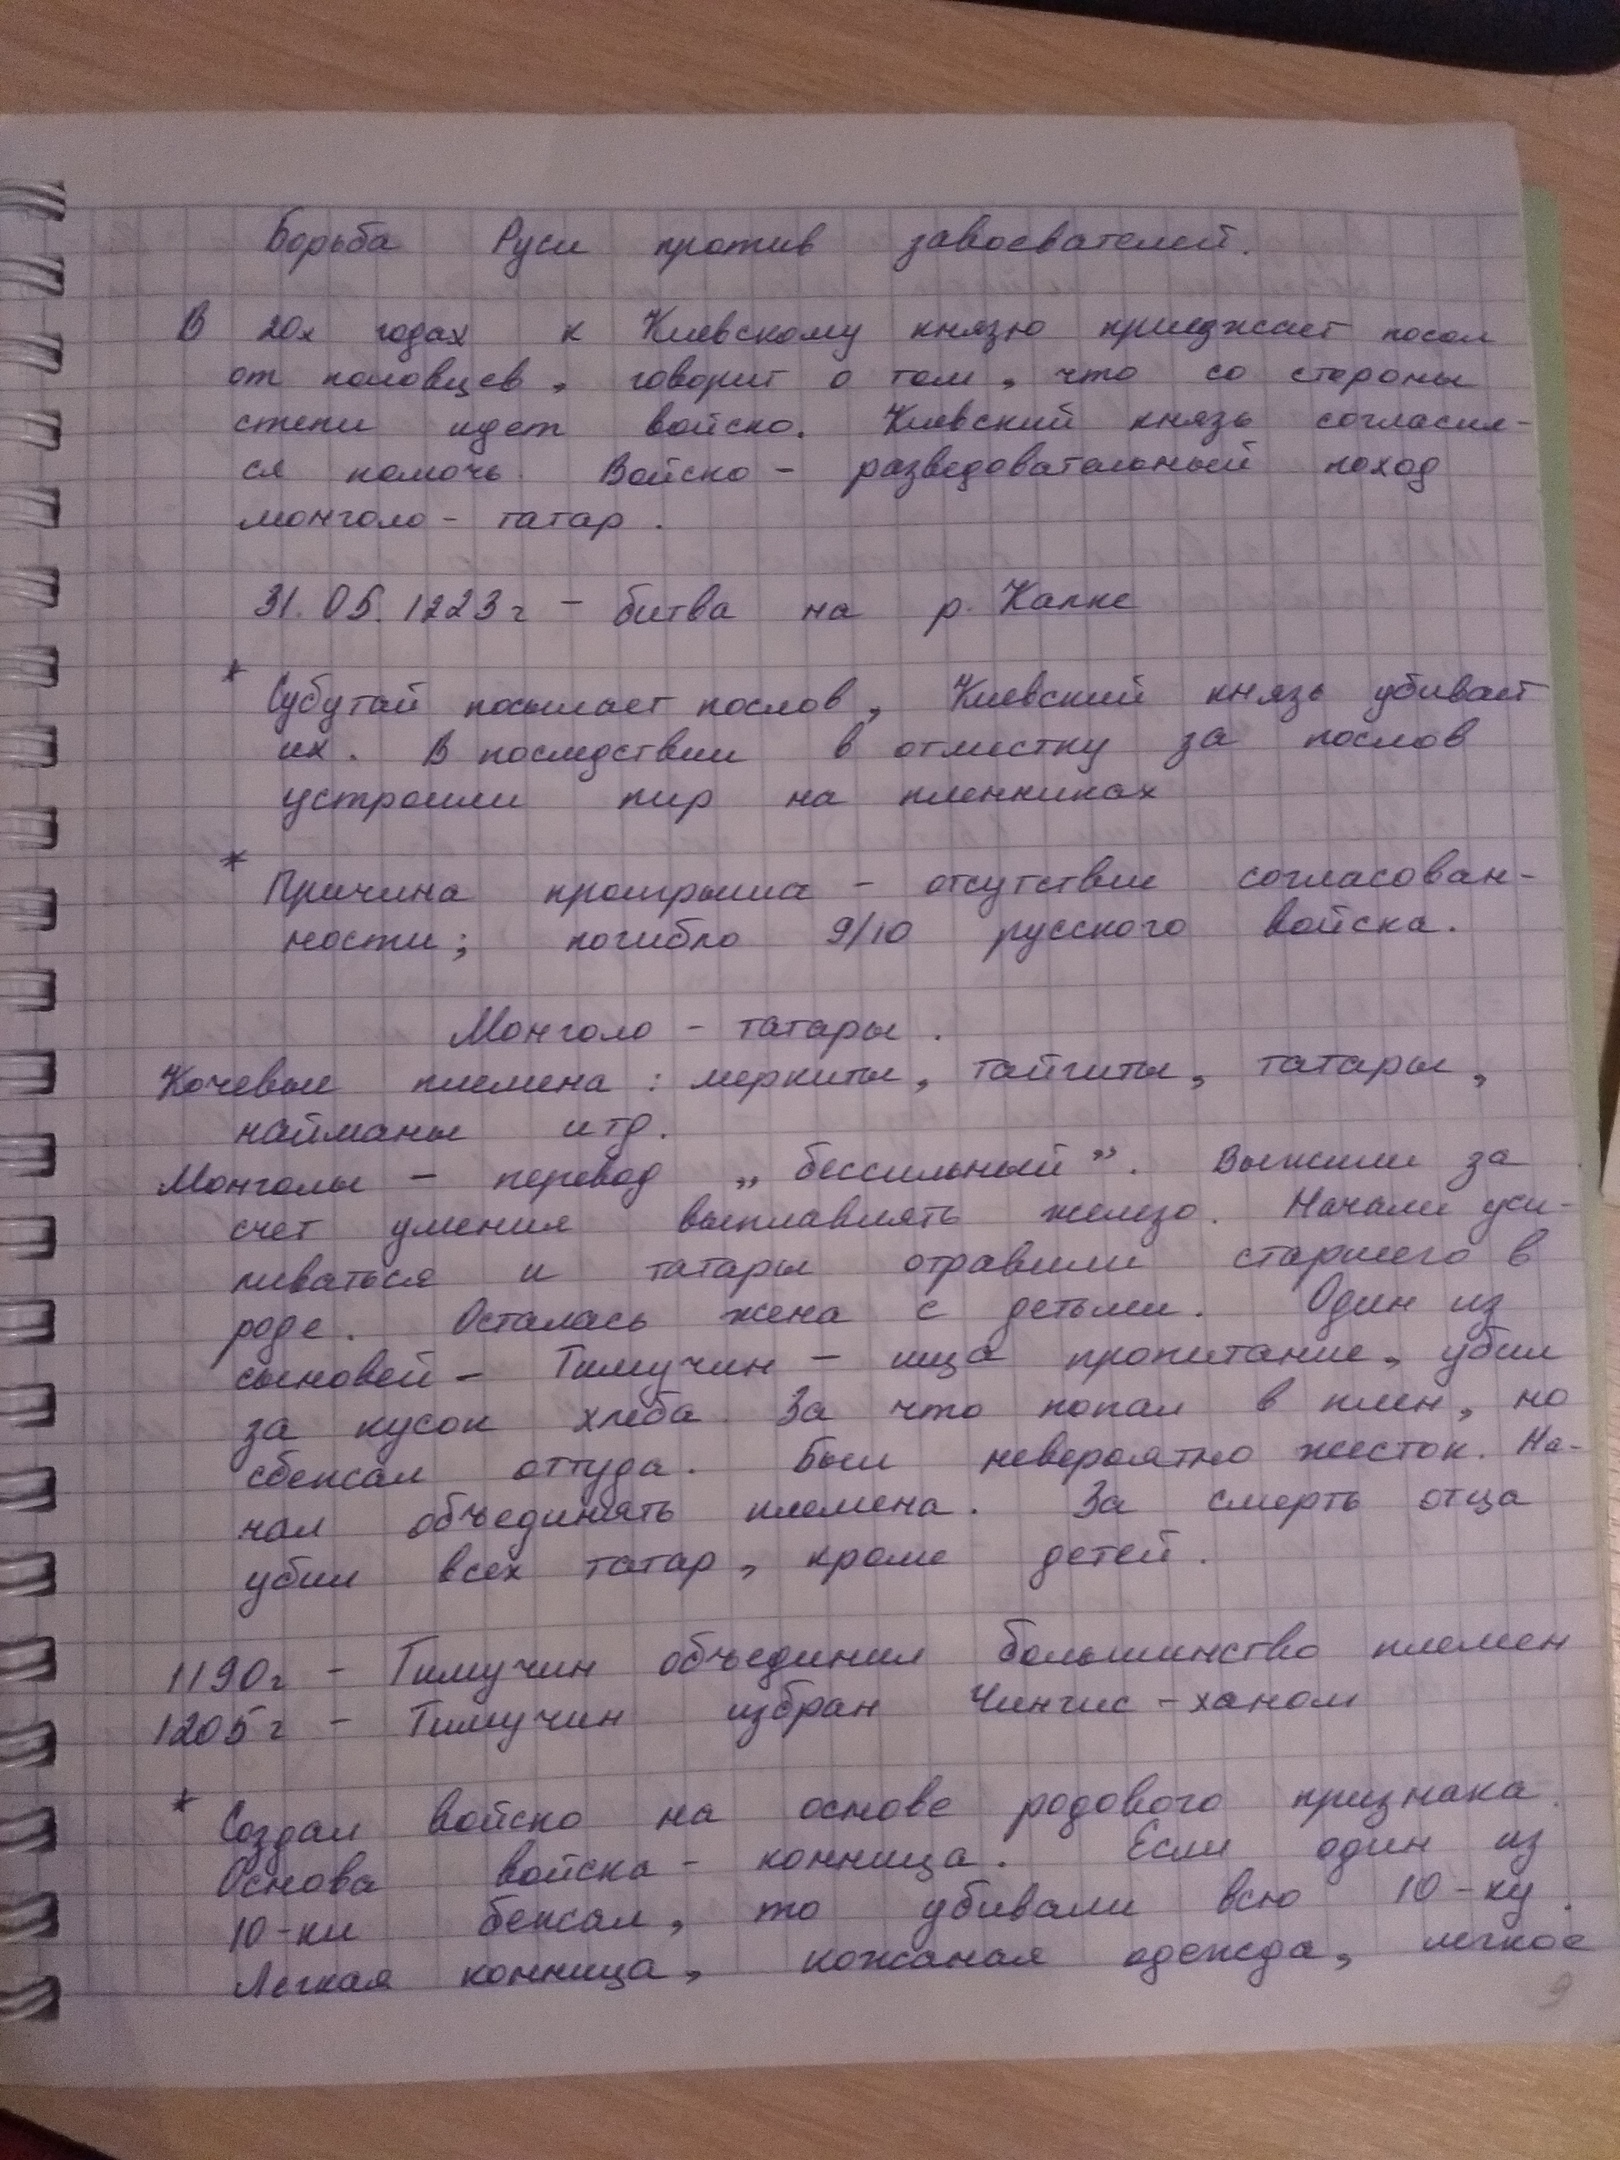 Борьба Руси против завоевателей.
В 20х годах к Киевскому князю приезжает посол
от половцев, говорит о том, что со стороны
степи идет войско. Киевский князь согласил-
ся помочь. Войско - разведовательный поход
монголо - татар.
31.05.1223г - битва на р. Калке
* Субутай посылает послов, Киевский князь убивает
их. В последствии в отместку за послов
устроили пир на пленниках
* Причина проигрыша - отсутствие согласован-
ности; погибло 9/10 русского войска.
Монголо - татары.
Кочевые племена: меркиты, тайгиты, татары,
найманы итд.
Монголы - перевод „бессильный”. Выжили за
счет умения выплавлять железо. Начали уси-
ливаться и татары отравили старшего в
роде. Осталась жена с детьми. Один из
сыновей - Тимучин - ища пропитание, убил
за кусок хлеба. За что попал в плен, но
сбежал оттуда. Был невероятно жесток. На-
чал объединять племена. За смерть отца
убил всех татар, кроме детей.
1190г - Тимучин объединил большинство племен
1205г - Тимучин избран Чингис-ханом
* Создал войско на основе родового признака.
Основа войска - конница. Если один из
10-ки бежал, то убивали всю 10-ку.
Легкая конница, кожаная одежда, легкое
9